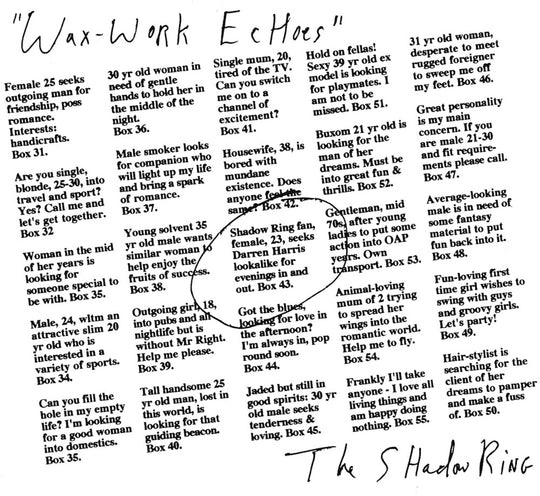 "Wax-Work Echoes"
Female 25 seeks
outgoing man for
friendship, poss
romance.
Interests:
handicrafts.
Box 31.
Are you single,
blonde, 25-30, into
travel and sport?
Yes? Call me and
let's get together.
Box 32
Woman in the mid
of her years is
looking for
someone special to
be with. Box 35.
Male, 24, wltm an
attractive slim 20
yr old who is
interested in a
variety of sports.
Box 34.
Can you fill the
hole in my empty
life? I'm looking
for a good woman
into domestics.
Box 35.
30 yr old woman in
need of gentle
hands to hold her in
the middle of the
night.
Box 36.
Male smoker looks
for companion who
will light up my life
and bring a spark
of romance.
Box 37.
Young solvent 35
yr old male wants
similar woman to
help enjoy the
fruits of success.
Box 38.
Outgoing girl, 18,
into pubs and all
nightlife but is
without Mr Right.
Help me please.
Box 39.
Tall handsome 25
yr old man, lost in
this world, is
looking for that
guiding beacon.
Box 40.
Single mum, 20,
tired of the TV.
Can you switch
me on to a
channel of
excitement?
Box 41.
Housewife, 38, is
bored with
mundane
existence. Does
anyone feel the
same? Box 42.
Shadow Ring fan,
female, 23, seeks
Darren Harris
lookalike for
evenings in and
out. Box 43.
Got the blues,
looking for love in
the afternoon?
I'm always in, pop
round soon.
Box 44.
Jaded but still in
good spirits: 30 yr
old male seeks
tenderness &
loving. Box 45.
Hold on fellas!
Sexy 39 yr old ex
model is looking
for playmates. I
am not to be
missed. Box 51.
Buxom 21 yr old is
looking for the
man of her
dreams. Must be
into great fun &
thrills. Box 52.
Gentleman, mid
70s, after young
ladies to put some
action into OAP
years. Own
transport. Box 53.
Animal-loving
mum of 2 trying
to spread her
wings into the
romantic world.
Help me to fly.
Box 54.
Frankly I'll take
anyone - I love all
living things and
am happy doing
nothing. Box 55.
31 yr old woman,
desperate to meet
rugged foreigner
to sweep me off
my feet. Box 46.
Great personality
is my main
concern. If you
are male 21-30
and fit require-
ments please call.
Box 47.
Average-looking
male is in need of
some fantasy
material to put
fun back into it.
Box 48.
Fun-loving first
time girl wishes to
swing with guys
and groovy girls.
Let's party!
Box 49.
Hair-stylist is
searching for the
client of her
dreams to pamper
and make a fuss
of. Box 50.
The SHadow RiNG